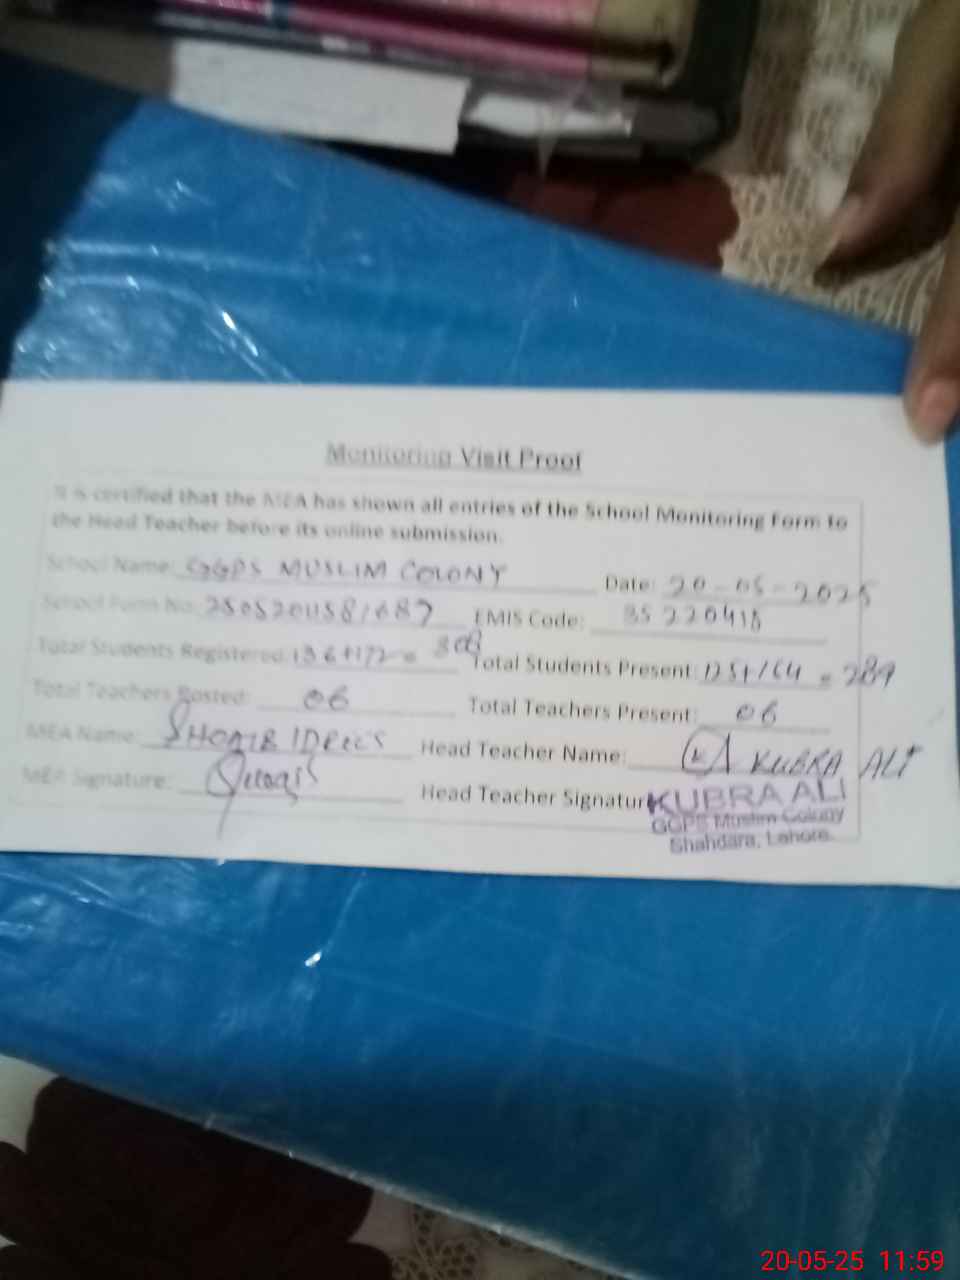 Monitoring Visit Proof
It is certified that the MEA has shown all entries of the School Monitoring Form to
the Head Teacher before its online submission.
School Name: GGPS MUSLIM COLONY Date: 20-05-2025
School Form No: EMIS Code: 35220418
Total Students Registered: 136+172= 308 Total Students Present: 125+164 = 289
Total Teachers Posted: 06 Total Teachers Present: 06
MEA Name: SHOAIB IDREES Head Teacher Name: KUBRA ALI
MEA Signature: Head Teacher Signature
KUBRA ALI
GGPS Muslim Colony
Shahdara, Lahore.
20-05-25 11:59